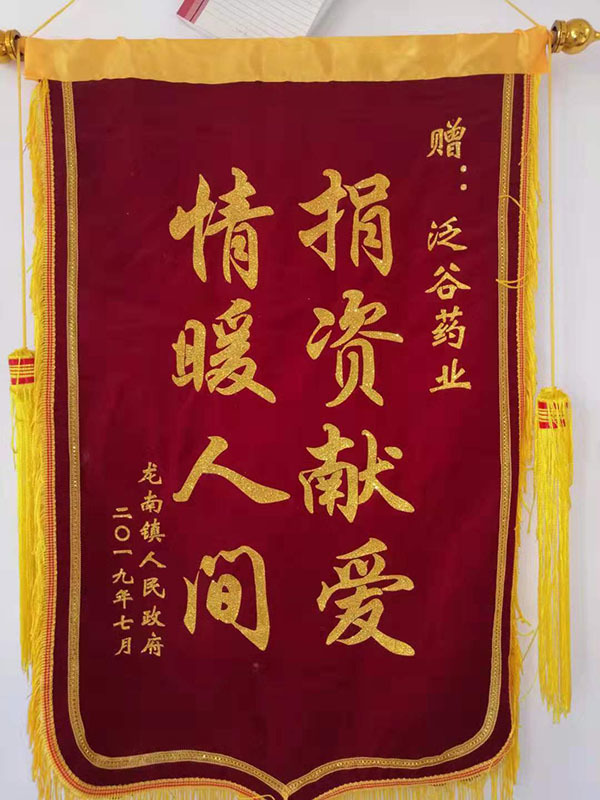 赠：泛谷药业
捐资献爱
情暖人间
龙南镇人民政府
二〇一九年七月